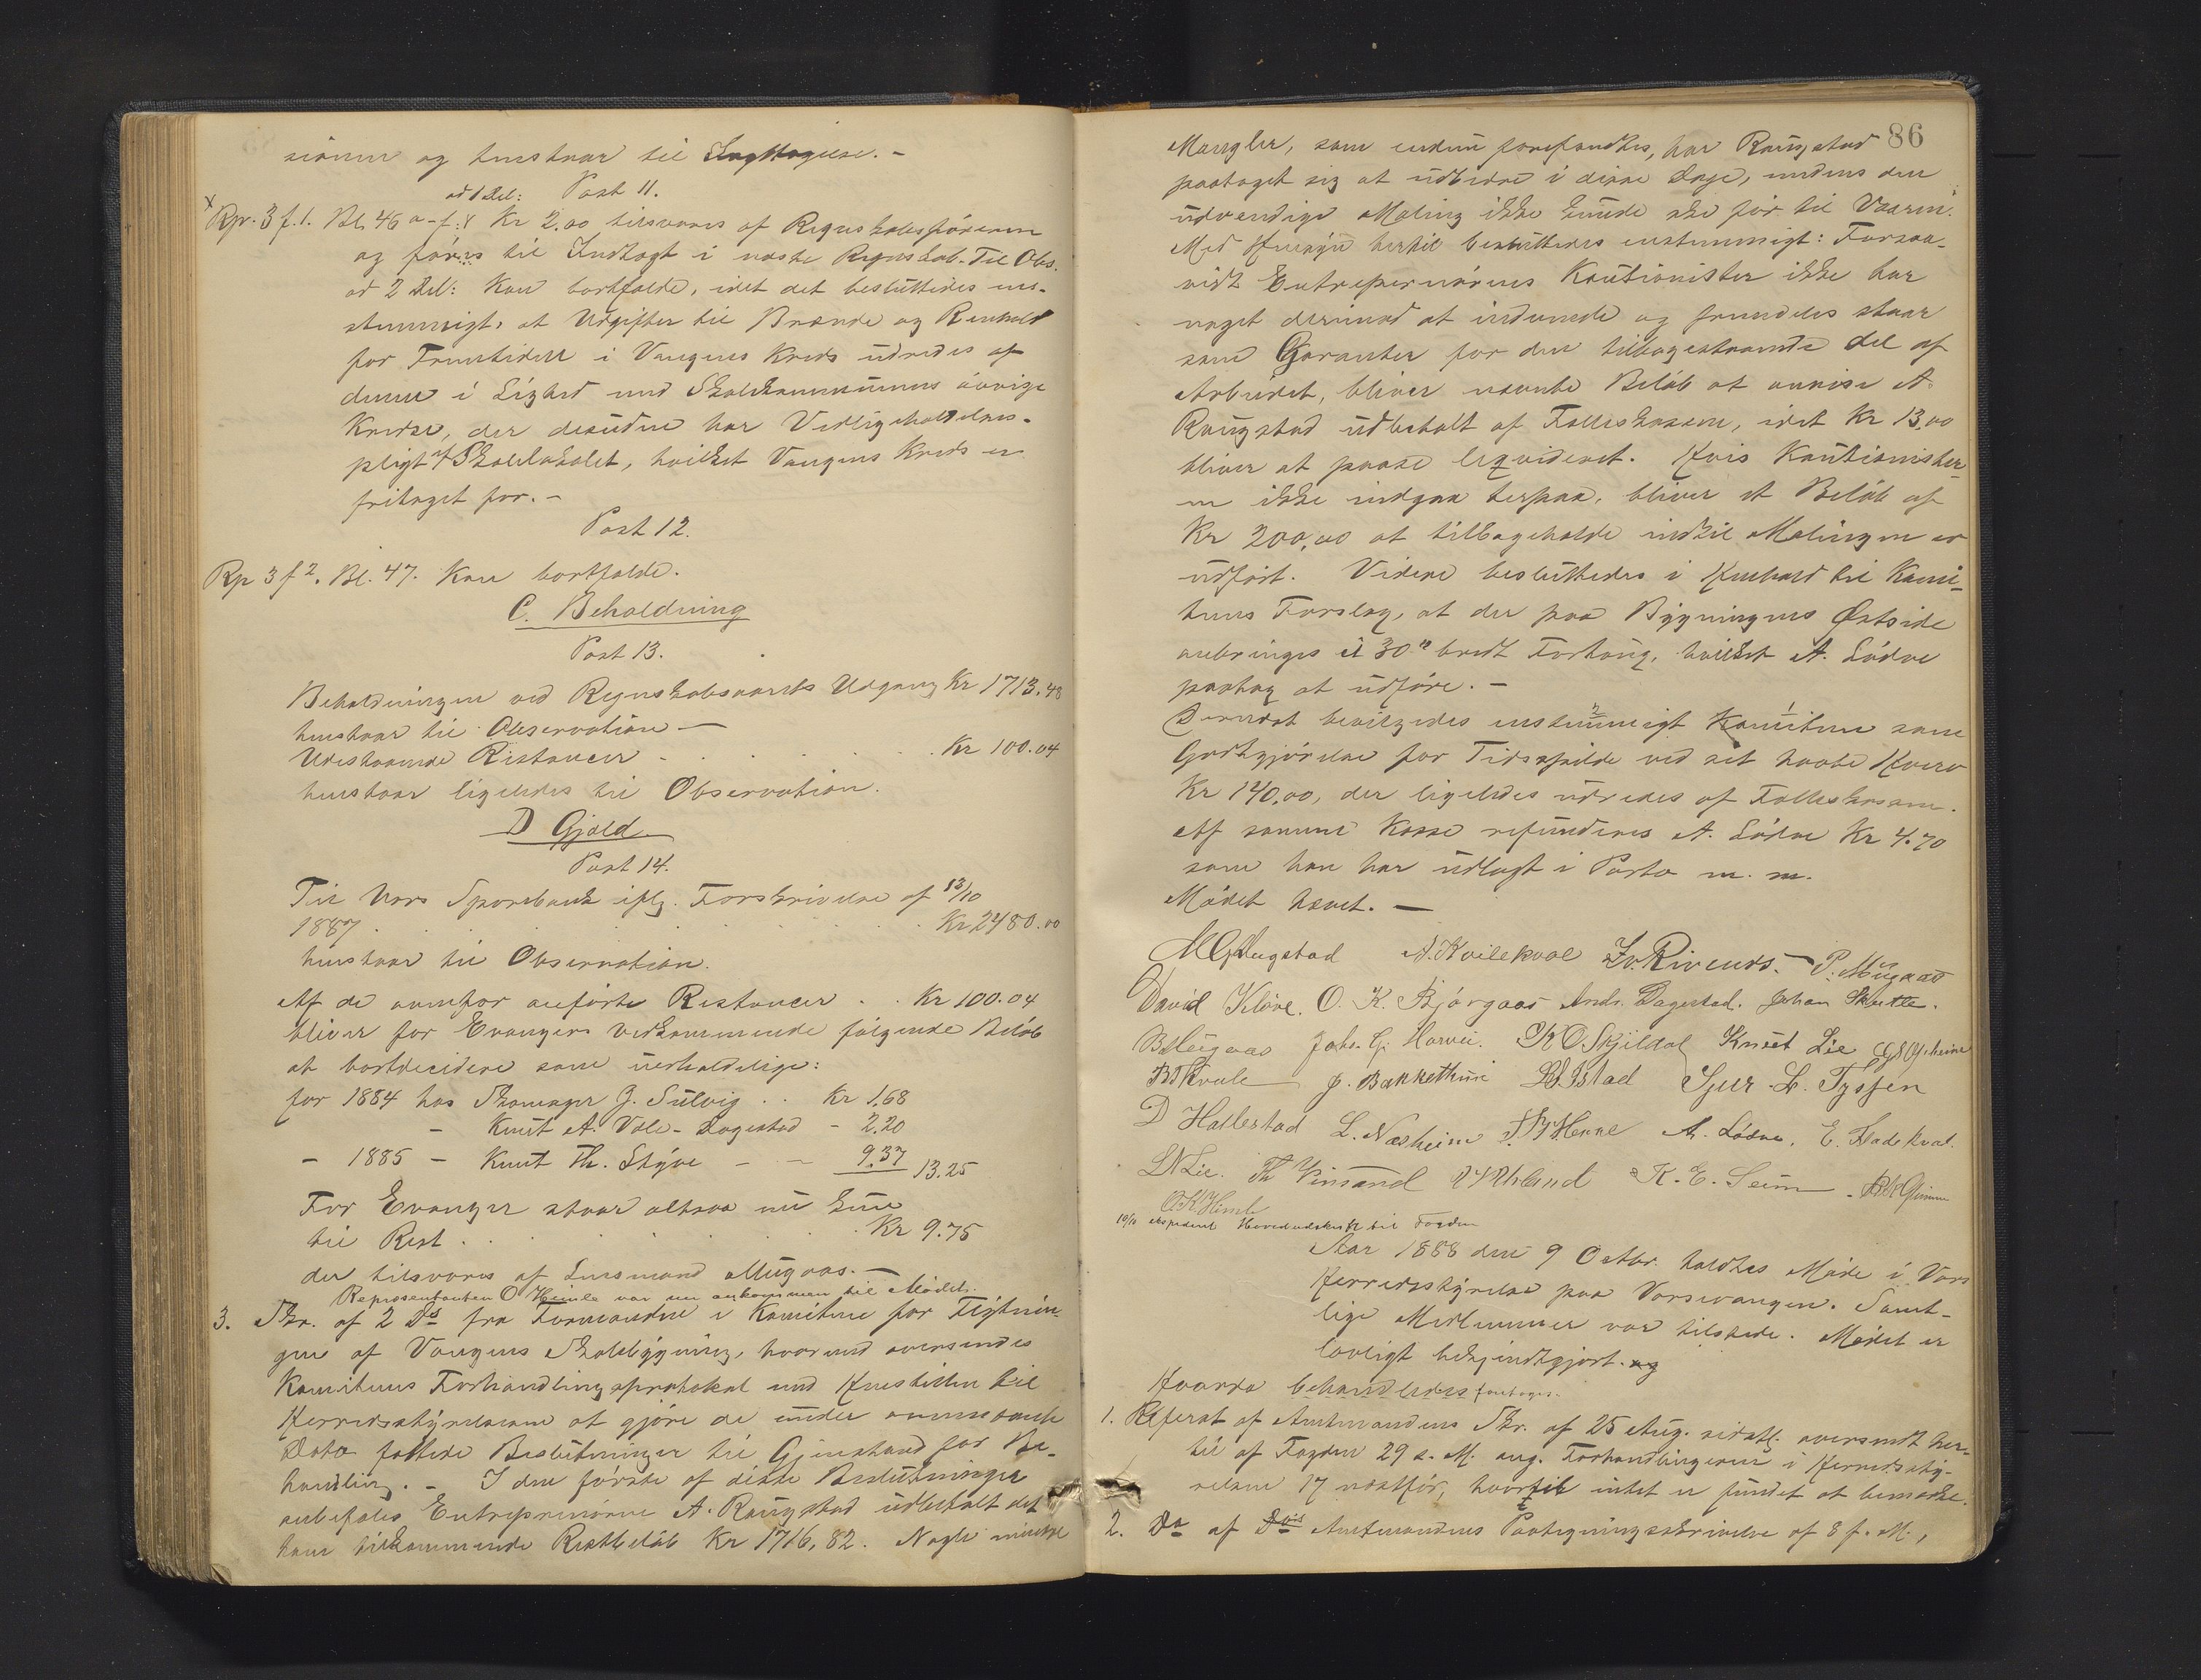 sioner og henstaar til Iagttagelse. –
ad 1 Del: Post 11.
Rp. 3 f. 1. Bl. 46 a-f. x Kr 2.00 tilsvares af Regnskabsføreren
og føres til Indtægt i næste Regnskab. Til Obs.
ad 2 Del: Kan bortfalde, idet det besluttedes een-
stemmigt, at Udgifter til Brænde og Renhold
for Fremtiden i Vangens Kreds udredes af
denne i Lighed med Skolekommunens øvrige
Kredse, der desuden har Vedligeholdelses-
pligt af Skolelokalet, hvilket Vangens Kreds er
fritaget for. –
Post 12.
Rp 3 f 2. Bl. 47. Kan bortfalde.
C. Beholdning
Post 13.
Beholdningen ved Regnskabsaarets Udgang Kr 1713.48
henstaar til Observation –
Udestaaende Restancer . . . . Kr 100.04
henstaar ligeledes til Observation.
D Gjæld
Post 14.
Til Vors Sparebank iflg. Forskrivelse af 13/10
1887 . . . . . . . Kr 2480.00
henstaar til Observation.
Af de ovenfor anførte Restancer . . Kr 100.04
bliver for Evangers Vedkommende følgende Beløb
at bortdecidere som uerholdelige:
for 1884 hos Skomager J. Sulvig . . Kr 1.68
– Knut A. Vole-Dagestad – 2.20
– 1885 – Knut Th. Skyve – – 9.37 13.25
For Evanger staar altsaa nu kun
til Rest . . . . . . Kr 9.75
der tilsvares af Lensmand Mugaas. –
Repræsentanten O Himle var nu ankommen til Mødet.
3. Skr. af 2 Ds fra Formanden i Komiteen for Flytnin-
gen af Vangens Skolebygning, hvormed oversendes
Komiteens Forhandlingsprotokol med Henstillen til
Herredsstyrelsen at gjøre de under ovennævnte
Dato fattede Beslutninger til Gjenstand for Be-
handling. – I den første af disse Beslutninger
anbefales Entreprenøren A. Raugstad udbetalt det
ham tilkommende Restbeløb Kr 1716,82. Nogle mindre
86
Mangler, som endnu forefandtes, har Raugstad
paataget sig at udbedre i disse Dage, medens den
udvendige Maling ikke kunde ske før til Vaaren.
Med Hensyn hertil besluttedes enstemmigt: Forsaa-
vidt Entreprenørens Kautionister ikke har
noget derimod at indvende og fremdeles staar
som Garanter for den tilbagestaaende Del af
Arbeidet, bliver nævnte Beløb at anvise A.
Raugstad udbetalt af Felleskassen, idet Kr 13,00
bliver at paase liqvideret. Hvis Kautionister-
ne ikke indgaa herpaa, bliver et Beløb af
Kr 200,00 at tilbageholde indtil Malingen er
udført. Videre besluttedes i Henhold til Komi-
teens Forslag, at der paa Bygningens Østside
anbringes et 30" bredt Fortoug, hvilket A. Lødve
paatog at udføre. –
Dernæst bevilgedes enstemmigt Komiteen som
Godtgjørelse for Tidsspilde ved sit havte Hverv
Kr 140,00, der ligeledes udredes af Felleskassen.
Af samme Kasse refunderes A. Lødve Kr 4.70
som han har udlagt i Porto m. m.
Mødet hævet. –
A. Kvilekval Iv. Rivenes. – P. Mugaas
David Kløve. O. K. Bjørgaas Ands. Dagestad. Johan Skutle.
Johs. G. Horvei. K O Skjeldal Knut Lie
B T Kvale J. Bakkethun Sjur L. Tyssen
D Hallestad L. Næsheim A. Lødve. E. Fladekval.
L N Lie. Th Vinsand K. E. Seim
O K Himle
10/10 expederet Hovedudskrift til Fogden
Aar 1888 den 9 Octbr. holdtes Møde i Vors
Herredsstyrelse paa Vossevangen. Samt-
lige Medlemmer var tilstede. Mødet er
lovligt bekjendtgjort. og
Hvorda behandledes foretoges.
1. Referat af Amtmandens Skr. af 25 Aug. sidstl. oversendt her-
til af Fogden 29 s. M. ang. Forhandlingerne i Herredssty-
relsen 17 næstfør, hvortil intet er fundet at bemærke.
2. Do af Dois Amtmandens Paategningsskrivelse af 8 f. M.,